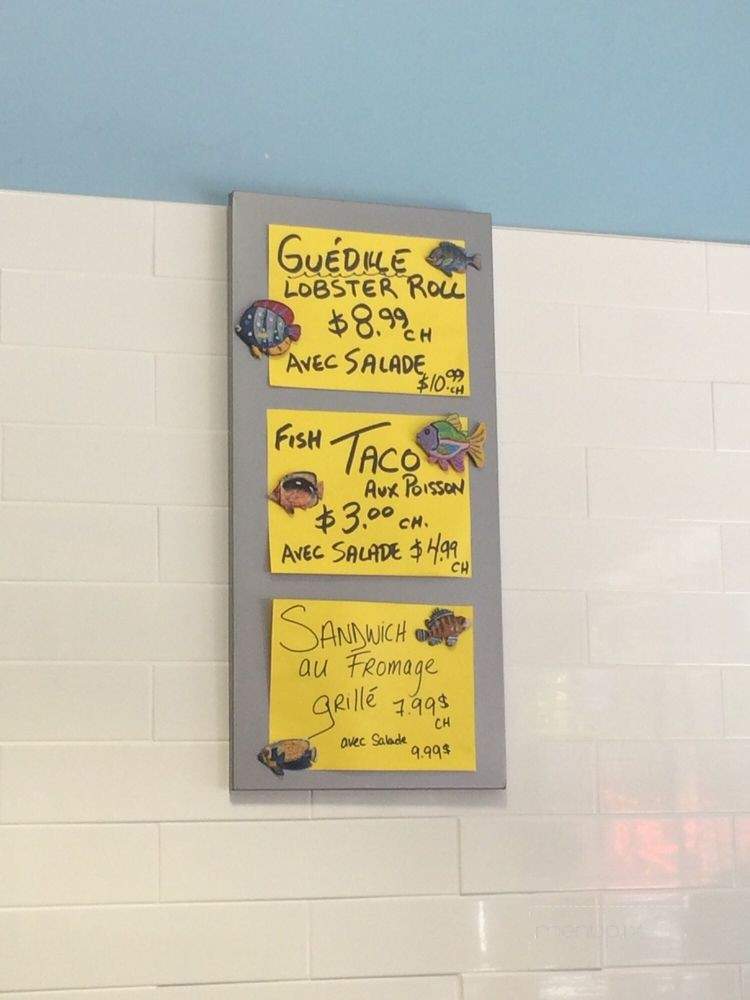 GUÉDILLE
LOBSTER ROLL
$8.99 CH
AVEC SALADE
$10.99 CH
FISH TACO
AUX POISSON
$3.00 CH.
AVEC SALADE $4.99 CH
SANDWICH
au FROMAGE
gRillé 7.99$
CH
avec Salade
9.99$